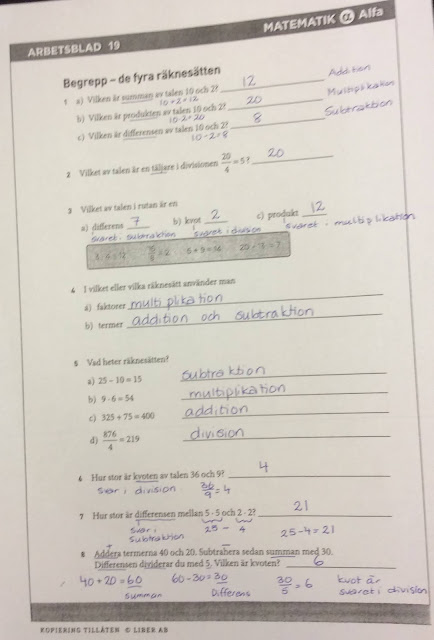 MATEMATIK α Alfa
ARBETSBLAD 19
Begrepp – de fyra räknesätten
1 a) Vilken är summan av talen 10 och 2? 12 Addition
10+2=12
b) Vilken är produkten av talen 10 och 2? 20 Multiplikation
10·2=20
c) Vilken är differensen av talen 10 och 2? 8 Subtraktion
10-2=8
2 Vilket av talen är en täljare i divisionen 20/4 = 5? 20
3 Vilket av talen i rutan är en
a) differens 7 b) kvot 2 c) produkt 12
svaret i subtraktion svaret i division svaret i multiplikation
6 + 9 = 14 20 - 13 = 7
4 I vilket eller vilka räknesätt använder man
a) faktorer multiplikation
b) termer addition och subtraktion
5 Vad heter räknesätten?
a) 25 – 10 = 15 subtraktion
b) 9 · 6 = 54 multiplikation
c) 325 + 75 = 400 addition
d) 876/4 = 219 division
6 Hur stor är kvoten av talen 36 och 9? 4
svar i division 36/9 = 4
7 Hur stor är differensen mellan 5 · 5 och 2 · 2? 21
svar i 25 - 4 25-4=21
subtraktion
8 Addera termerna 40 och 20. Subtrahera sedan summan med 30.
Differensen dividerar du med 5. Vilken är kvoten? 6
40+20=60 60-30=30 30/5 = 6 kvot är
summan Differens svaret i division
KOPIERING TILLÅTEN © LIBER AB